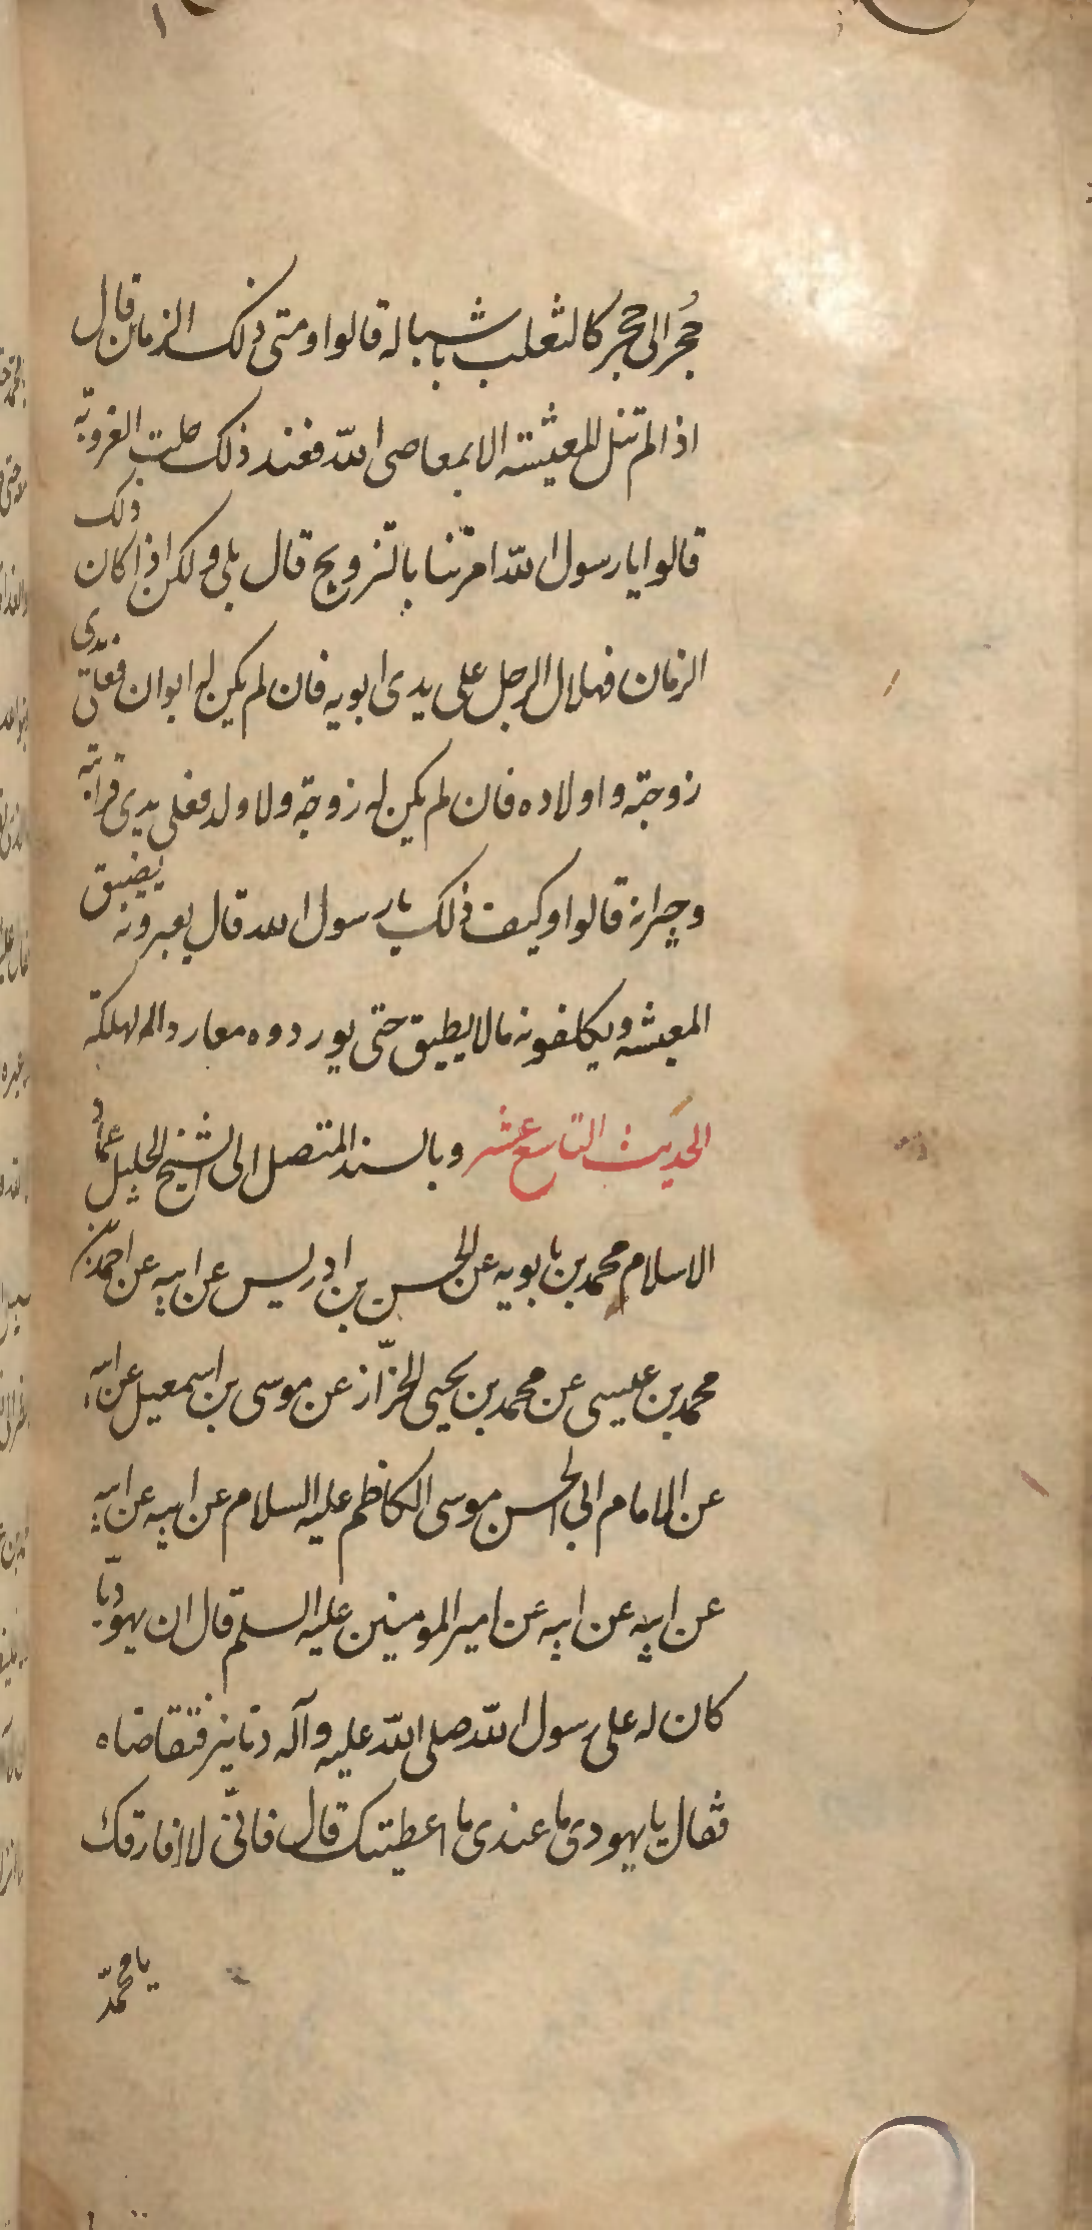 جُحر الى جحر كالثعلب باشباله قالوا ومتى ذلك الزمان قال
اذا لم تنل المعيشة الا بمعاصى الله فعند ذلك حلت العزوبة
قالوا يا رسول الله امرتنا بالتزويج قال بلى ولكن اذا كان ذلك
الزمان فهلاك الرجل على يدى ابويه فان لم يكن له ابوان فعلى يدى
زوجته واولاده فان لم يكن له زوجة ولا ولد فعلى يدى قرابته
وجيرانه قالوا وكيف ذلك يا رسول الله قال يعيرونه بضيق
المعيشه ويكلفونه مالا يطيق حتى يوردوه موارد الهلكة
الحديث التاسع عشر وبالسند المتصل الى الشيخ الجليل عماد
الاسلام محمد بن بابويه عن الحسن بن ادريس عن ابيه عن احمد بن
محمد بن عيسى عن محمد بن يحيى الخزّاز عن موسى بن اسمعيل عن ابيه
عن الامام ابى الحسن موسى الكاظم عليه السلام عن ابيه عن ابيه
عن ابيه عن ابيه عن امير المومنين عليه السلم قال ان يهوديّا
كان له على رسول الله صلى الله عليه وآله دنانير فتقاضاه
فقال يا يهودى ما عندى ما اعطيتك قال فانّى لا افارقك
يا محمّد